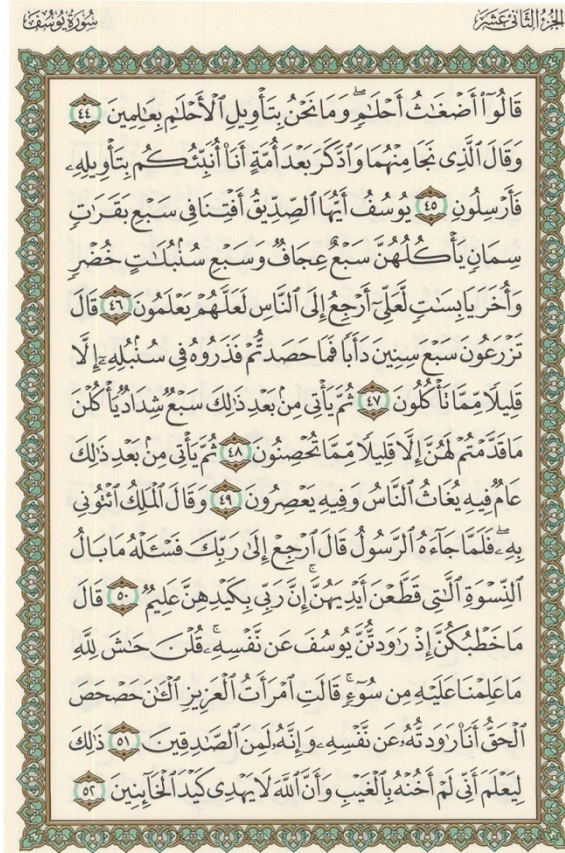 الجزء الثاني عشر سورة يوسف
قَالُوٓا۟ أَضْغَـٰثُ أَحْلَـٰمٍۢ ۖ وَمَا نَحْنُ بِتَأْوِيلِ ٱلْأَحْلَـٰمِ بِعَـٰلِمِينَ ٤٤
وَقَالَ ٱلَّذِى نَجَا مِنْهُمَا وَٱدَّكَرَ بَعْدَ أُمَّةٍ أَنَا۠ أُنَبِّئُكُم بِتَأْوِيلِهِۦ
فَأَرْسِلُونِ ٤٥ يُوسُفُ أَيُّهَا ٱلصِّدِّيقُ أَفْتِنَا فِى سَبْعِ بَقَرَٰتٍۢ
سِمَانٍۢ يَأْكُلُهُنَّ سَبْعٌ عِجَافٌۭ وَسَبْعِ سُنۢبُلَـٰتٍ خُضْرٍۢ
وَأُخَرَ يَابِسَـٰتٍۢ لَّعَلِّىٓ أَرْجِعُ إِلَى ٱلنَّاسِ لَعَلَّهُمْ يَعْلَمُونَ ٤٦ قَالَ
تَزْرَعُونَ سَبْعَ سِنِينَ دَأَبًۭا فَمَا حَصَدتُّمْ فَذَرُوهُ فِى سُنۢبُلِهِۦٓ إِلَّا
قَلِيلًۭا مِّمَّا تَأْكُلُونَ ٤٧ ثُمَّ يَأْتِى مِنۢ بَعْدِ ذَٰلِكَ سَبْعٌۭ شِدَادٌۭ يَأْكُلْنَ
مَا قَدَّمْتُمْ لَهُنَّ إِلَّا قَلِيلًۭا مِّمَّا تُحْصِنُونَ ٤٨ ثُمَّ يَأْتِى مِنۢ بَعْدِ ذَٰلِكَ
عَامٌۭ فِيهِ يُغَاثُ ٱلنَّاسُ وَفِيهِ يَعْصِرُونَ ٤٩ وَقَالَ ٱلْمَلِكُ ٱئْتُونِى
بِهِۦ ۖ فَلَمَّا جَآءَهُ ٱلرَّسُولُ قَالَ ٱرْجِعْ إِلَىٰ رَبِّكَ فَسْـَٔلْهُ مَا بَالُ
ٱلنِّسْوَةِ ٱلَّـٰتِى قَطَّعْنَ أَيْدِيَهُنَّ ۚ إِنَّ رَبِّى بِكَيْدِهِنَّ عَلِيمٌۭ ٥٠ قَالَ
مَا خَطْبُكُنَّ إِذْ رَٰوَدتُّنَّ يُوسُفَ عَن نَّفْسِهِۦ ۚ قُلْنَ حَـٰشَ لِلَّهِ
مَا عَلِمْنَا عَلَيْهِ مِن سُوٓءٍۢ ۚ قَالَتِ ٱمْرَأَتُ ٱلْعَزِيزِ ٱلْـَٔـٰنَ حَصْحَصَ
ٱلْحَقُّ أَنَا۠ رَٰوَدتُّهُۥ عَن نَّفْسِهِۦ وَإِنَّهُۥ لَمِنَ ٱلصَّـٰدِقِينَ ٥١ ذَٰلِكَ
لِيَعْلَمَ أَنِّى لَمْ أَخُنْهُ بِٱلْغَيْبِ وَأَنَّ ٱللَّهَ لَا يَهْدِى كَيْدَ ٱلْخَآئِنِينَ ٥٢